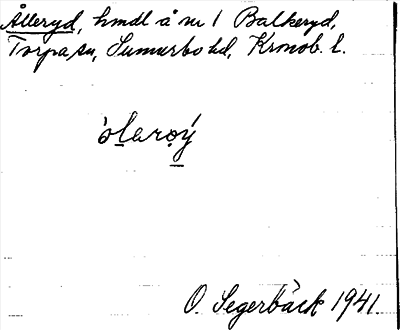 Ålleryd, hmdl å nr 1 Balkeryd,
Torpa sn, Sunnerbo hd, Krnob. l.
òlarøý
O. Segerbäck 1941.